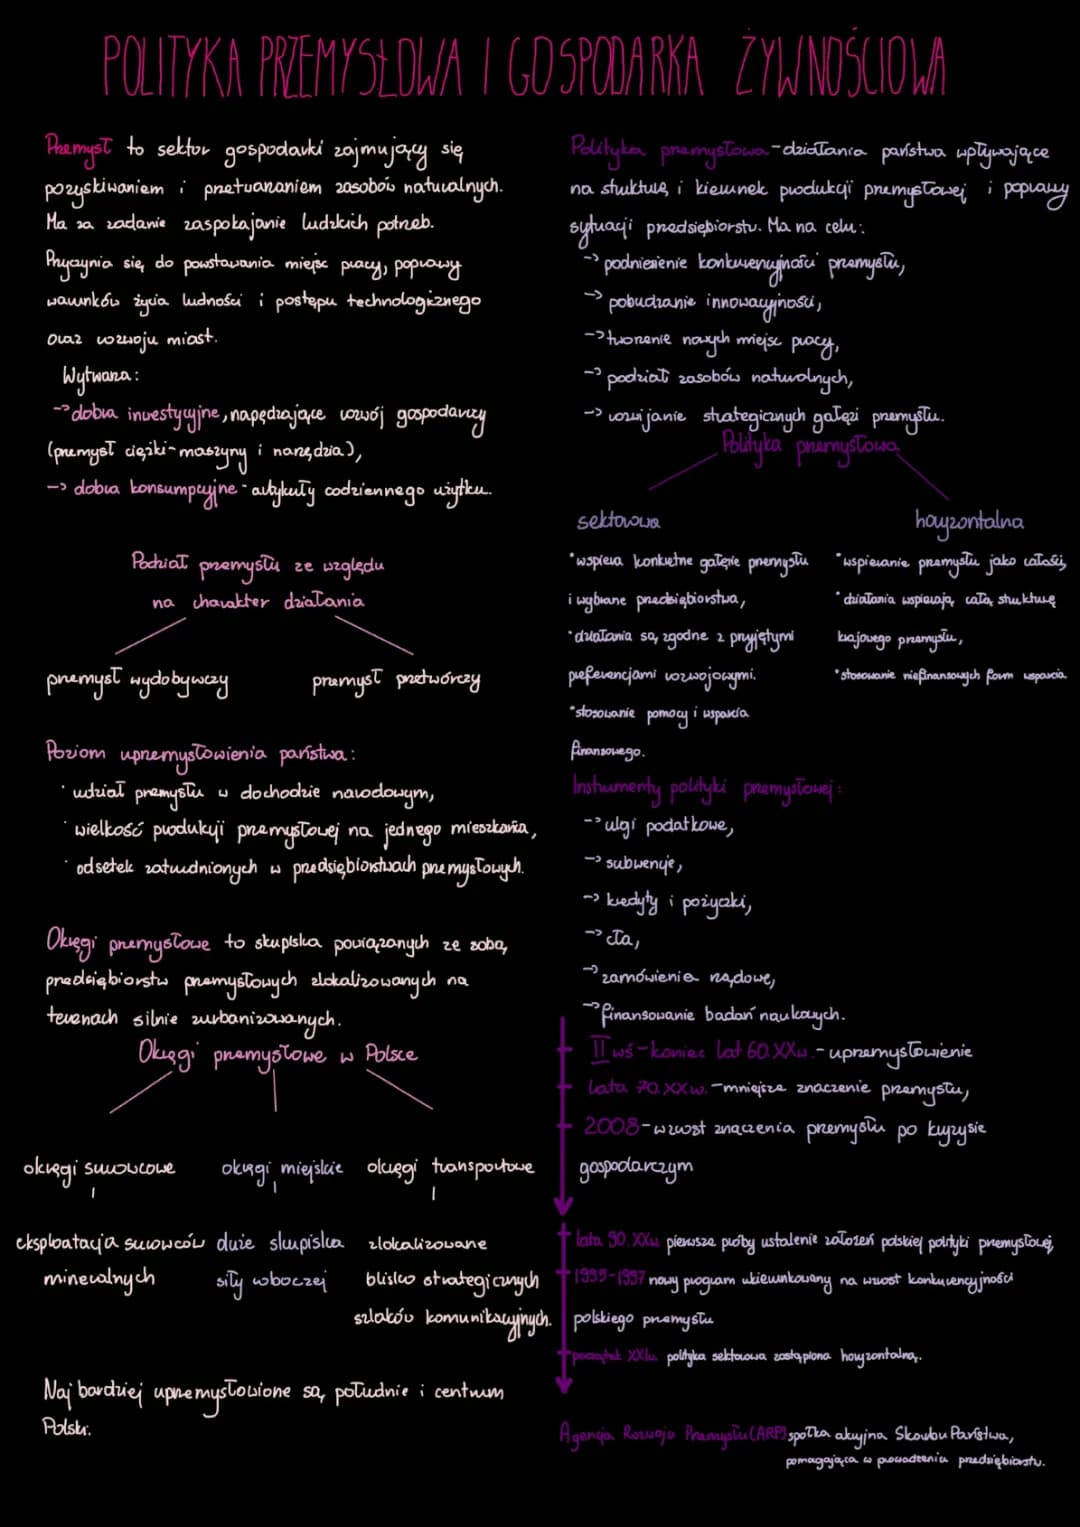 POLITYKA PRZEMYSŁOWA I GOSPODARKA ŻYWNOŚCIOWA
Przemysł to sektor gospodarki zajmujący się
pozyskiwaniem i przetwarzaniem zasobów naturalnych.
Ma za zadanie zaspokajanie ludzkich potrzeb.
Przyczynia się do powstawania miejsc pracy, poprawy
warunków życia ludności i postępu technologicznego
oraz rozwoju miast.
Wytwarza:
-> dobra inwestycyjne, napędzające rozwój gospodarczy
(przemysł ciężki - maszyny i narzędzia),
-> dobra konsumpcyjne - artykuły codziennego użytku.
Podział przemysłu ze względu
na charakter działania
przemysł wydobywczy przemysł przetwórczy
Poziom uprzemysłowienia państwa:
· udział przemysłu w dochodzie narodowym,
· wielkość produkcji przemysłowej na jednego mieszkańca,
· odsetek zatrudnionych w przedsiębiorstwach przemysłowych.
Okręgi przemysłowe to skupiska powiązanych ze sobą
przedsiębiorstw przemysłowych zlokalizowanych na
terenach silnie zurbanizowanych.
Okręgi przemysłowe w Polsce
okręgi surowcowe okręgi miejskie okręgi transportowe
eksploatacja surowców duże skupiska zlokalizowane
mineralnych siły roboczej blisko strategicznych
szlaków komunikacyjnych.
Najbardziej uprzemysłowione są południe i centrum
Polski.
Polityka przemysłowa - działania państwa wpływające
na strukturę i kierunek produkcji przemysłowej i poprawy
sytuacji przedsiębiorstw. Ma na celu:
-> podniesienie konkurencyjności przemysłu,
-> pobudzanie innowacyjności,
-> tworzenie nowych miejsc pracy,
-> podział zasobów naturalnych,
-> rozwijanie strategicznych gałęzi przemysłu.
Polityka przemysłowa
sektorowa horyzontalna
*wspiera konkretne gałęzie przemysłu
i wybrane przedsiębiorstwa,
*działania są zgodne z przyjętymi
preferencjami rozwojowymi.
*stosowanie pomocy i wsparcia
finansowego.
*wspieranie przemysłu jako całości,
*działania wspierają całą strukturę
krajowego przemysłu,
*stosowanie niefinansowych form wsparcia.
Instrumenty polityki przemysłowej:
-> ulgi podatkowe,
-> subwencje,
-> kredyty i pożyczki,
-> cła,
-> zamówienia rządowe,
-> finansowanie badań naukowych.
II wś - koniec lat 60. XX w. - uprzemysłowienie
Lata 70. XX w. - mniejsze znaczenie przemysłu,
2008 - wzrost znaczenia przemysłu po kryzysie
gospodarczym
lata 90. XX w. pierwsze próby ustalenie założeń polskiej polityki przemysłowej,
1995-1997 nowy program ukierunkowany na wzrost konkurencyjności
polskiego przemysłu
początek XXI w. polityka sektorowa zastąpiona horyzontalną.
Agencja Rozwoju Przemysłu (ARP) spółka akcyjna Skarbu Państwa,
pomagająca w prowadzeniu przedsiębiorstw.